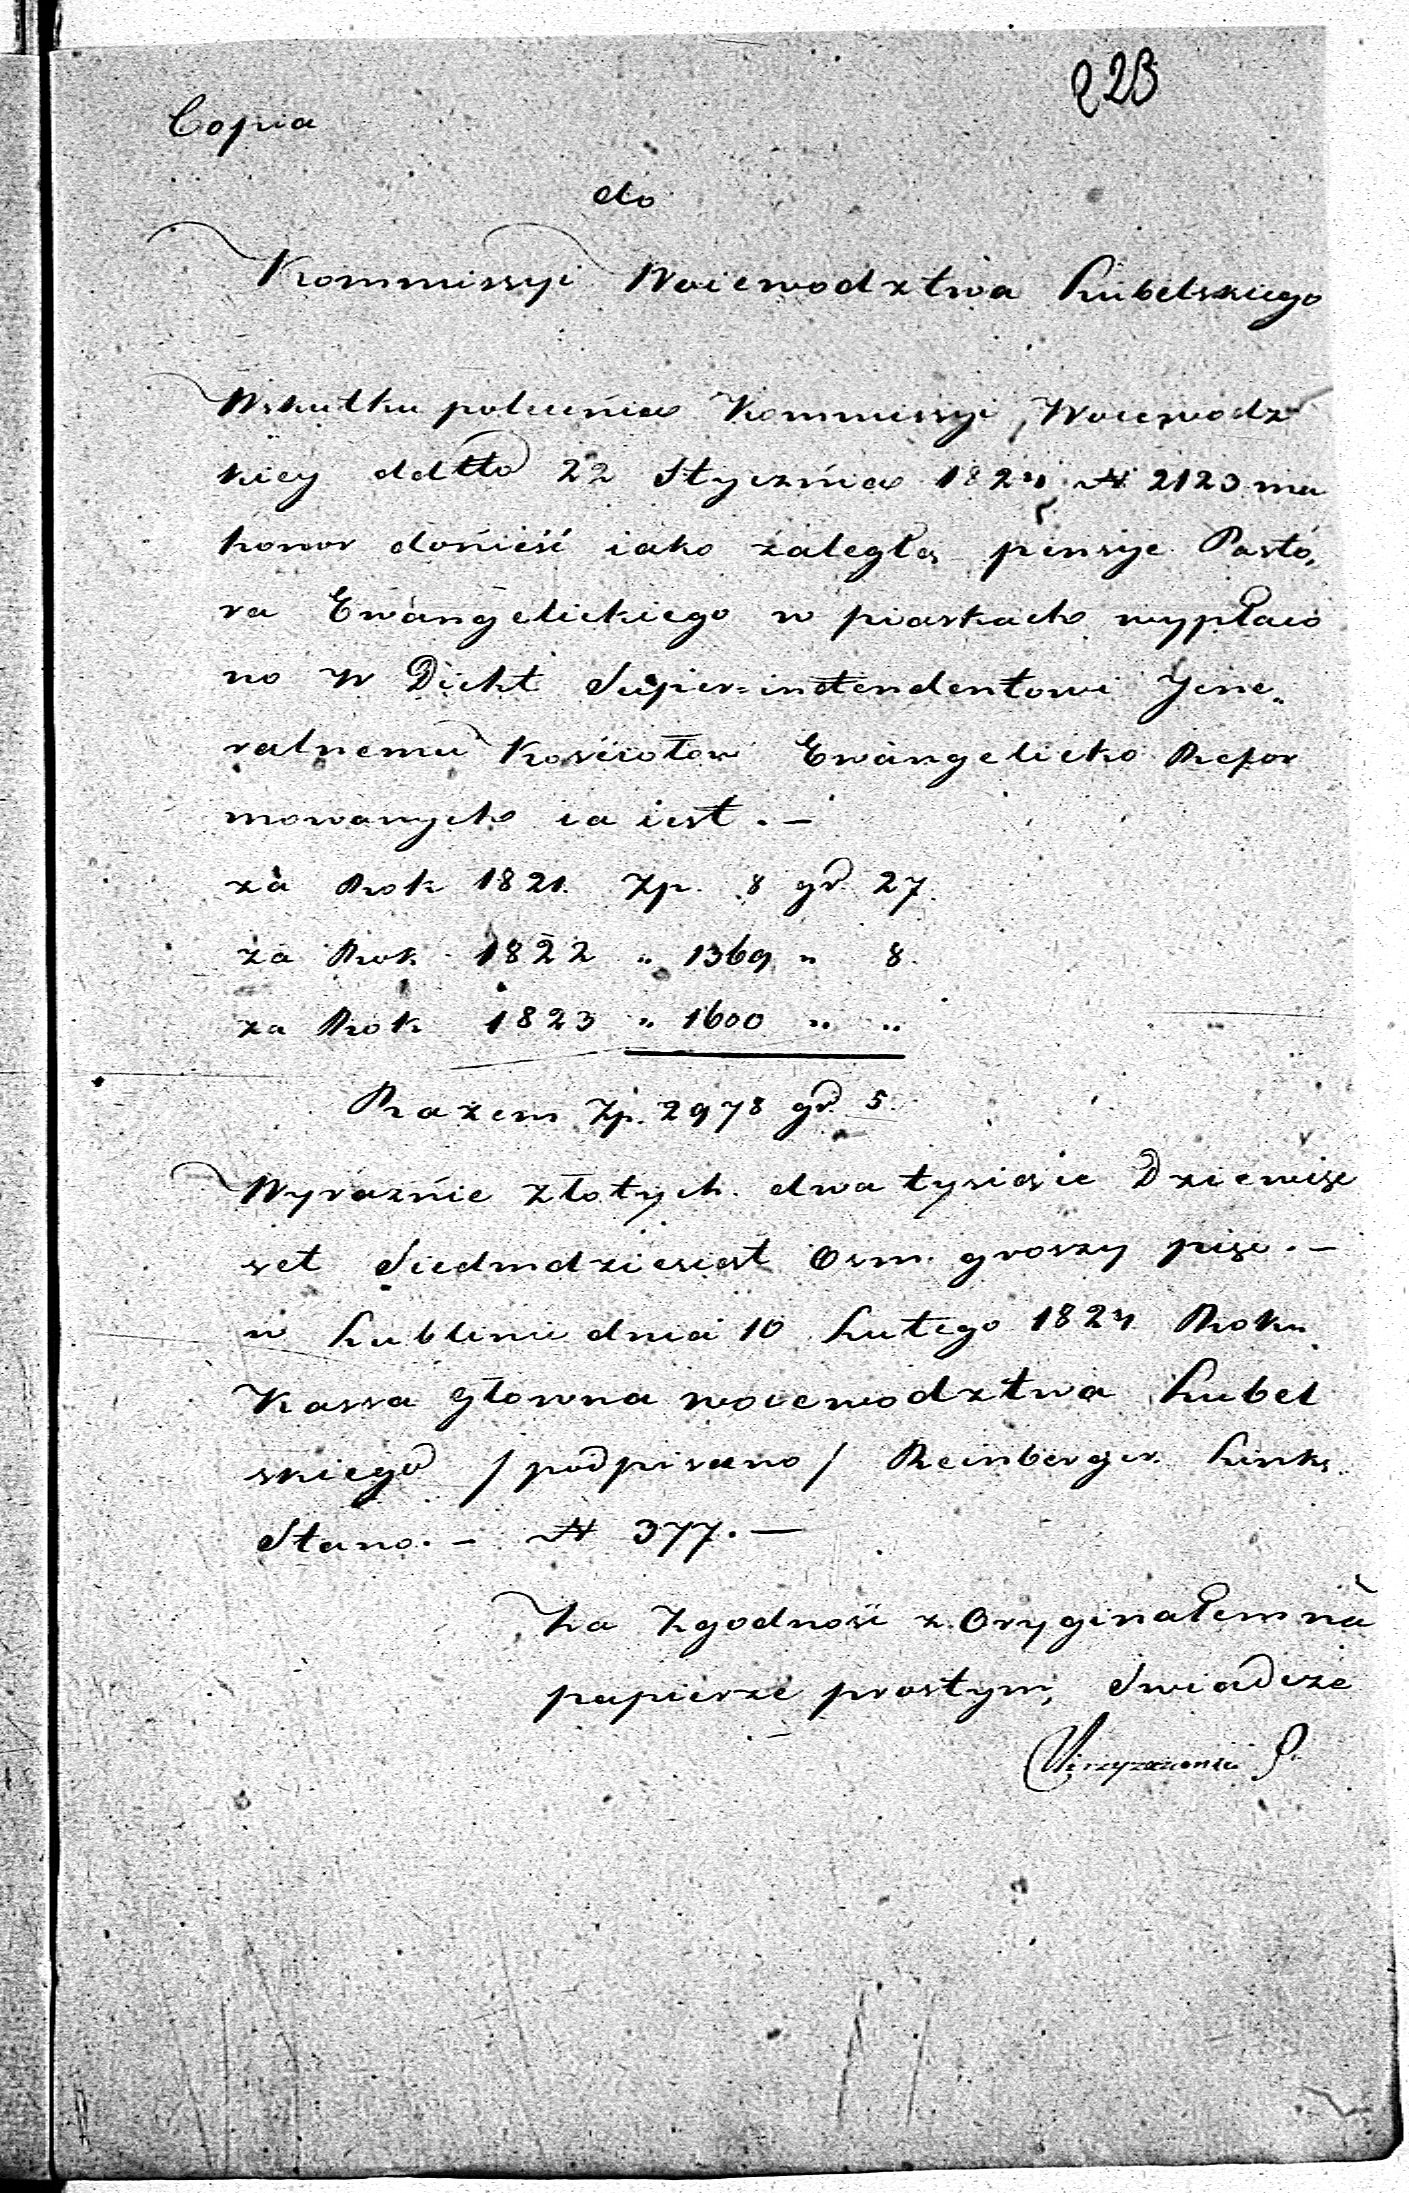 223
Copia
do
Kommissyi Woiewodztwa Lubelskiego
Wskutku polecenia Kommissyi Woiewodz
kiey ddtto 22 Stycznia 1824 N 2123 ma
honor donieść iako zaległą pensye Pasto„
ra Ewangelickiego w piaskach wypłaco
no W Dickt Super=intendentowi Jene„
ralnemu Kościołow Ewangelicko Refor
mowanych ia iest . —
za Rok 1821. Zp. 8 gr. 27.
za Rok 1822 „ 1369 „ 8.
za Rok 1823 „ 1600 „ „
Razem Zp. 2978 gr. 5.
Wyraźnie złotych dwa tysiące Dziewięc
set Siedmdziesiąt Osm groszy pięc . —
w Lublinie dnia 10 Lutego 1824 Roku
Kassa głowna woiewodztwa Lubel
skiego / podpisano / Reinberger
N 377. —
Za Zgodność z Oryginałem na
papierze prostym, Swiadcze